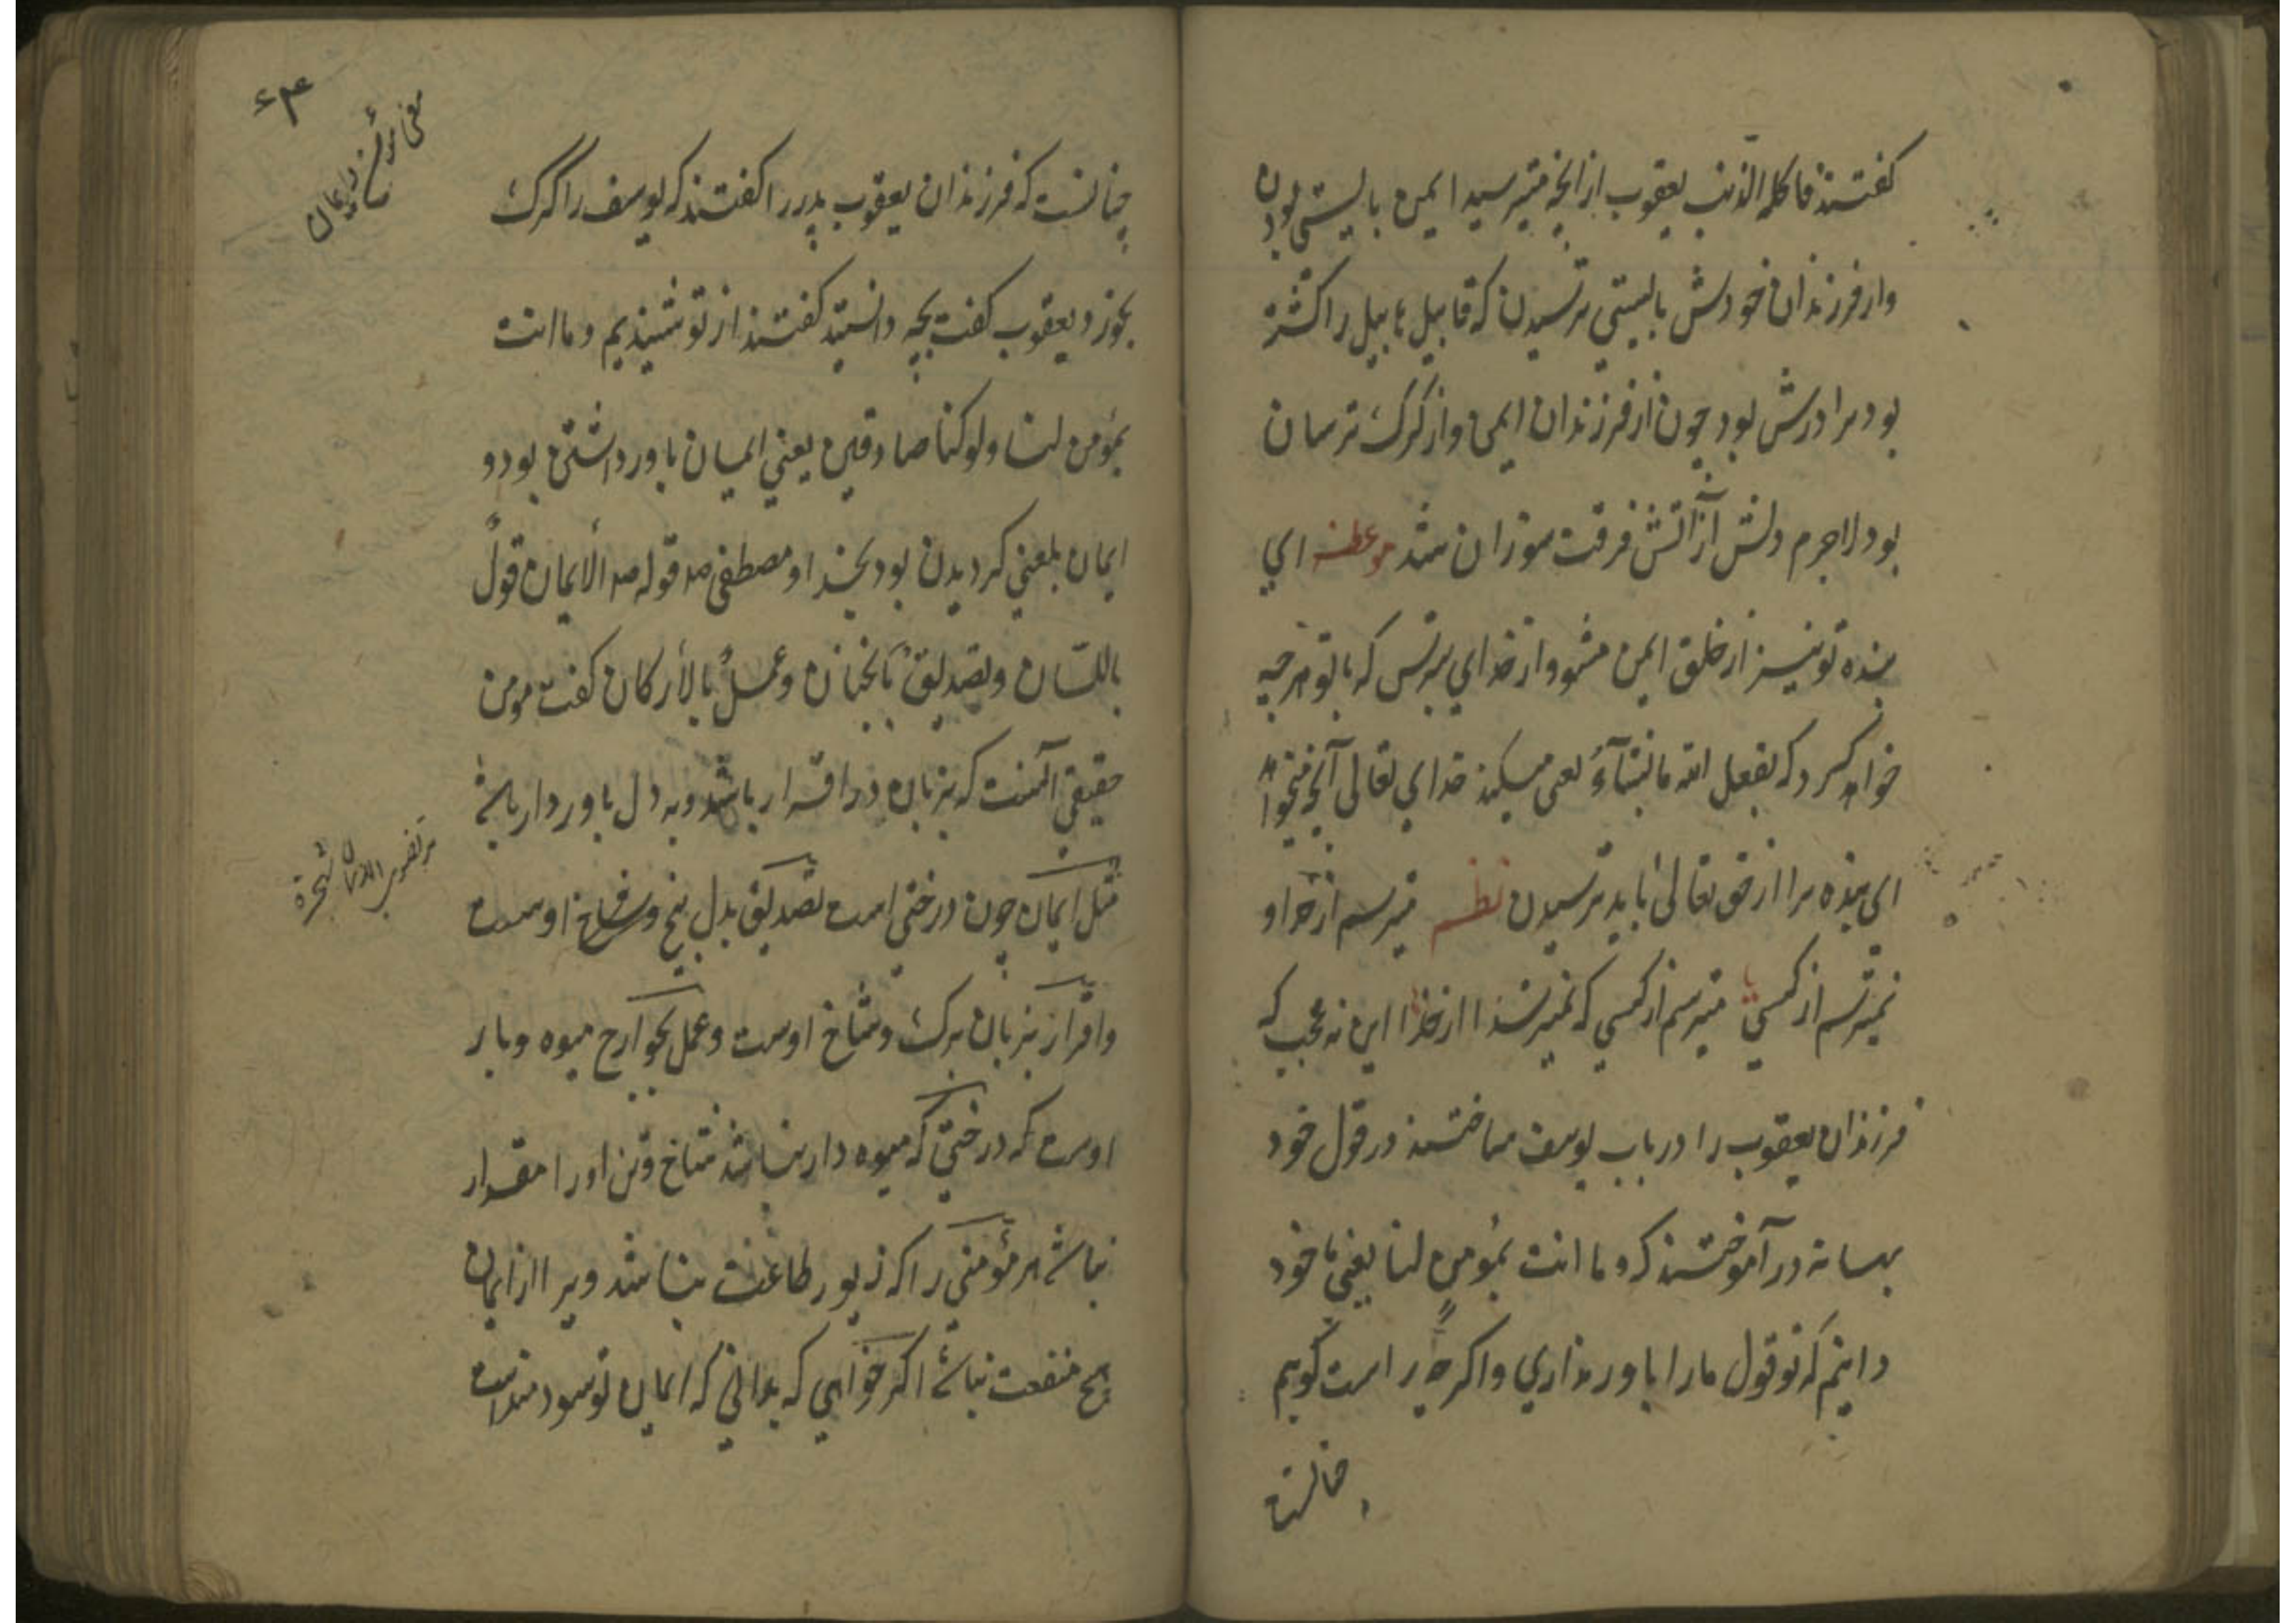 گفتند فاکله الذئب یعقوب از آنچه میترسید ایمن بایستی بودن
و از فرزندان خودش بایستی ترسیدن که قابیل هابیل را کشته
بود برادرش بود چون از فرزندان ایمن و از گرگ ترسان
بود لاجرم دلش از آتش فرقت سوزان شد موعظه ای
بنده تو نیز از خلق ایمن مشو و از خدای بترس که با تو هرچه
خواهد کرد که یفعل الله ما یشآءُ یعنی میکند خدای تعالی آنچه میخواهد
ای بنده مرا از حق تعالی باید ترسیدن نظم میترسم از خدا و
نمیترسم از کسی میترسم از کسی که نمیترسد از خدا این نه عجب که
فرزندان یعقوب را در باب یوسف ساختند در قول خود
بهانه در آموختند که و ما انت بمُومن لنا یعنی ما خود
دانیم که تو قول ما را باور نداری و اگرچه راست گویم
چنانست
۶۴
چنانست که فرزندان یعقوب پدر را گفتند که یوسف را گرگ
بخورد یعقوب گفت بچه دانستید گفتند از تو شنیدیم و ما انت
بمؤمن لنا ولو کنا صادقین یعنی ایمان باور داشتن بود و
ایمان بمعنی گردیدن بود بخدا و مصطفی صه قوله صه الأیمان قولٌ
باللسان وتصدیقٌ بالجنان وعملٌ بالأرکان گفت مومن
حقیقی آنست که بزبان در اقرار باشد و به دل باور دار باشد
مثل ایمان چون درختی است تصدیق بدل بیخ و شاخ اوست
و اقرار بزبان برگ و شاخ اوست و عمل بجوارح میوه و بار
اوست که درختی که میوه دار نباشد شاخ و تن او را مقدار
نباشد هر مؤمنی را که زیور طاعت نباشد ویرا از ایمان
هیچ منفعت نباشد اگر خواهی که بدانی که ایمان تو سودمنداست